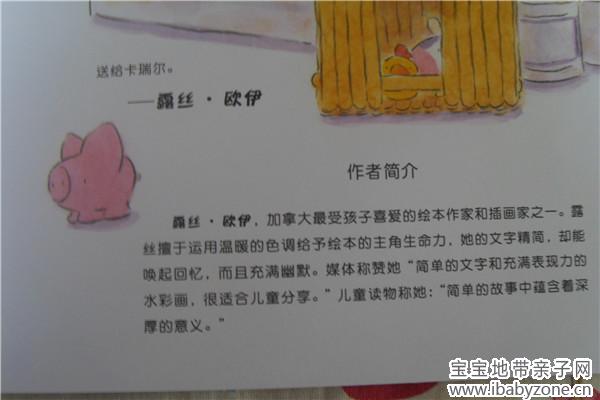 送给卡瑞尔。
——露丝·欧伊
作者简介
露丝·欧伊，加拿大最受孩子喜爱的绘本作家和插画家之一。露
丝擅于运用温暖的色调给予绘本的主角生命力，她的文字精简，却能
唤起回忆，而且充满幽默。媒体称赞她“简单的文字和充满表现力的
水彩画，很适合儿童分享。”儿童读物称她：“简单的故事中蕴含着深
厚的意义。”
宝宝地带亲子网
www.ibabyzone.cn